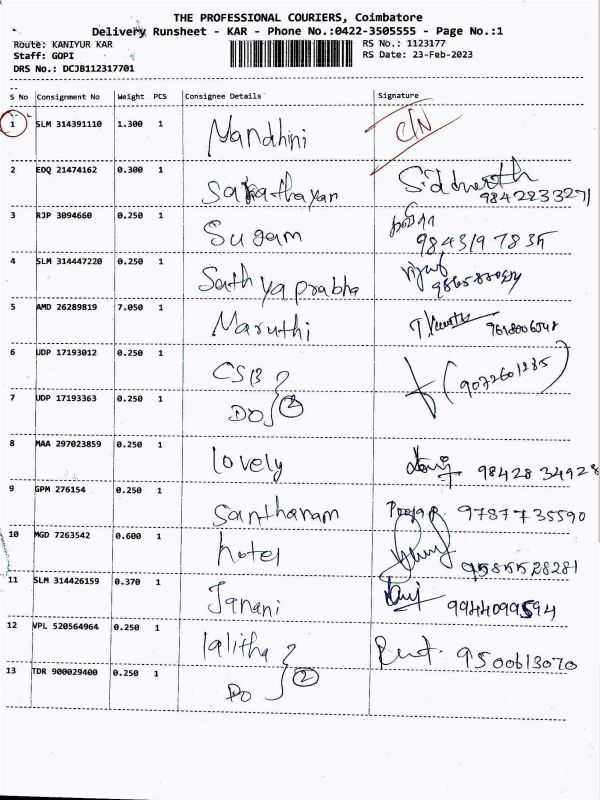 THE PROFESSIONAL COURIERS, Coimbatore
Delivery Runsheet - KAR - Phone No.:0422-3505555 - Page No.:1
Route: KANIYUR KAR RS No.: 1123177
Staff: GOPI RS Date: 23-Feb-2023
DRS No.: DCJB112317701
S No Consignment No Weight PCS Consignee Details Signature
1 SLM 314391110 1.300 1 Nandhini C/N
2 EDQ 21474162 0.300 1 Siddharth
9842233271
3 RJP 3094660 0.250 1 Sugam
9843197835
4 SLM 314447220 0.250 1 Sathyaprabha
5 AMD 26289819 7.050 1 Maruthi
6 UDP 17193012 0.250 1 CSB (9072601235)
7 UDP 17193363 0.250 1 DO 2
8 MAA 297023859 0.250 1 lovely 9842834928
9 GPM 276154 0.250 1 Santhanam Pooja P. 9787735590
10 MGD 7263542 0.600 1 hotel 9585528281
11 SLM 314426159 0.370 1 Janani 9944099594
12 VPL 520564964 0.250 1 lalitha 9500613070
13 TDR 900029400 0.250 1 DO 2